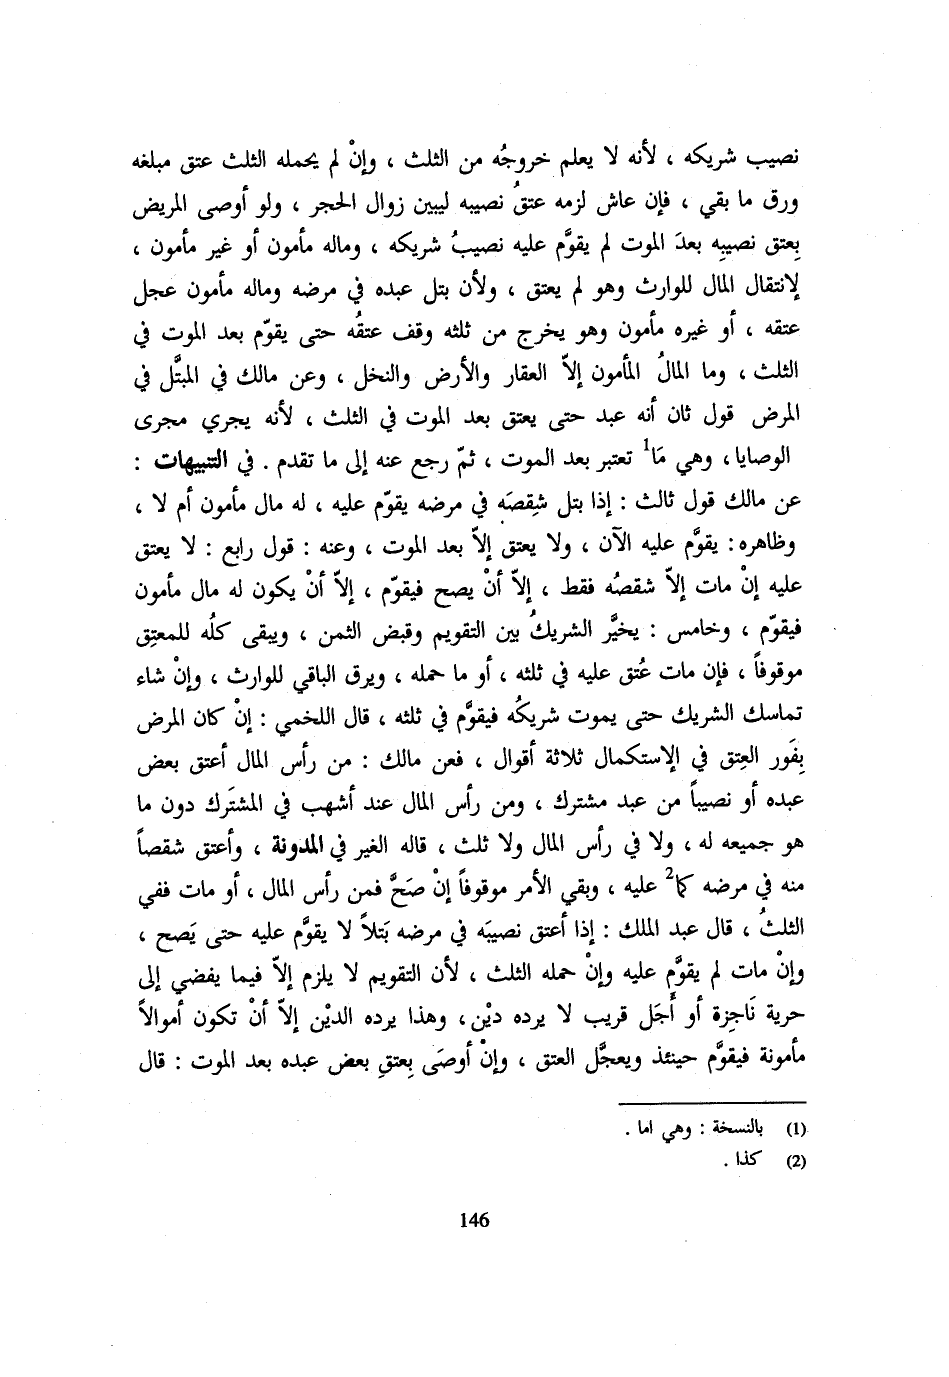 نصيب شريكه ، لأنه لا يعلم خروجُه من الثلث ، وإنْ لم يحمله الثلث عتق مبلغه
ورق ما بقي ، فإن عاش لزمه عتقُ نصيبه ليبين زوال الحجر ، ولو أوصى المريض
بِعتق نصيبِه بعدَ الموت لم يقوَّم عليه نصيبُ شريكه ، وماله مأمون أو غير مأمون ،
لإنتقال المال للوارث وهو لم يعتق ، ولأن بتل عبده في مرضه وماله مأمون عجل
عتقه ، أو غيره مأمون وهو يخرج من ثلثه وقف عتقُه حتى يقوّم بعد الموت في
الثلث ، وما المالُ المأمون إلاّ العقار والأرض والنخل ، وعن مالك في المبتَّل في
المرض قول ثان أنه عبد حتى يعتق بعد الموت في الثلث ، لأنه يجري مجرى
الوصايا ، وهي مَا1 تعتبر بعد الموت ، ثمّ رجع عنه إلى ما تقدم . في التنبيهات :
عن مالك قول ثالث : إذا بتل شِقصَه في مرضه يقوّم عليه ، له مال مأمون أم لا ،
وظاهره : يقوَّم عليه الآن ، ولا يعتق إلاّ بعد الموت ، وعنه : قول رابع : لا يعتق
عليه إنْ مات إلاّ شقصُه فقط ، إلاّ أنْ يصح فيقوّم ، إلاّ أنْ يكون له مال مأمون
فيقوّم ، وخامس : يخيَّر الشريكُ بين التقويم وقبض الثمن ، ويبقى كلُه للمعتِق
موقوفاً ، فإن مات عُتق عليه في ثلثه ، أو ما حمله ، ويرق الباقي للوارث ، وإنْ شاء
تماسك الشريك حتى يموت شريكُه فيقوَّم في ثلثه ، قال اللخمي : إنْ كان المرض
بِفَور العِتق في الإستكمال ثلاثة أقوال ، فعن مالك : من رأس المال أعتق بعض
عبده أو نصيباً من عبد مشترك ، ومن رأس المال عند أشهب في المشتَرك دون ما
هو جميعه له ، ولا في رأس المال ولا ثلث ، قاله الغير في المدونة ، وأعتق شقصاً
منه في مرضه كما2 عليه ، وبقي الأمر موقوفاً إنْ صَحَّ فمن رأس المال ، أو مات ففي
الثلثُ ، قال عبد الملك : إذا أعتق نصيبَه في مرضه بَتلاً لا يقوَّم عليه حتى يَصح ،
وإنْ مات لم يقوَّم عليه وإنْ حمله الثلث ، لأن التقويم لا يلزم إلاّ فيما يفضي إلى
حرية نَاجِزة أو أَجَل قريب لا يرده ديْن ، وهذا يرده الديْن إلاّ أنْ تكون أموالاً
مأمونة فيقوَّم حينئذ ويعجَّل العتق ، وإنْ أوصَى بِعتقِ بعض عبده بعد الموت : قال
(1) بالنسخة : وهي اما .
(2) كذا .
146